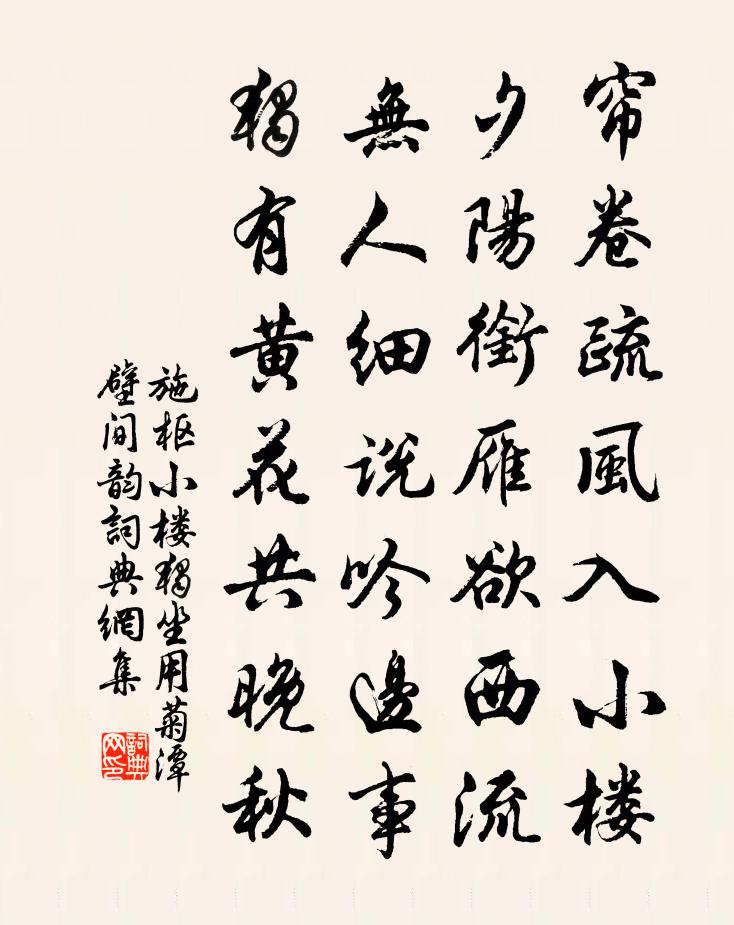 帘卷疏風入小楼
夕陽銜雁欲西流
無人細说吟邊事
獨有黄花共晚秋
施枢小楼獨坐用菊潭
壁间韵詞典網集
詞典网印